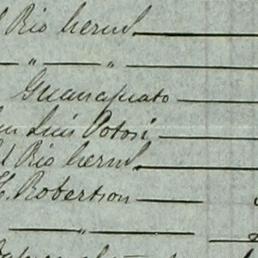 l Rio hermd
" — "
Guanajuato
an Luis Potosi
l Rio hermd
H. Robertson
"